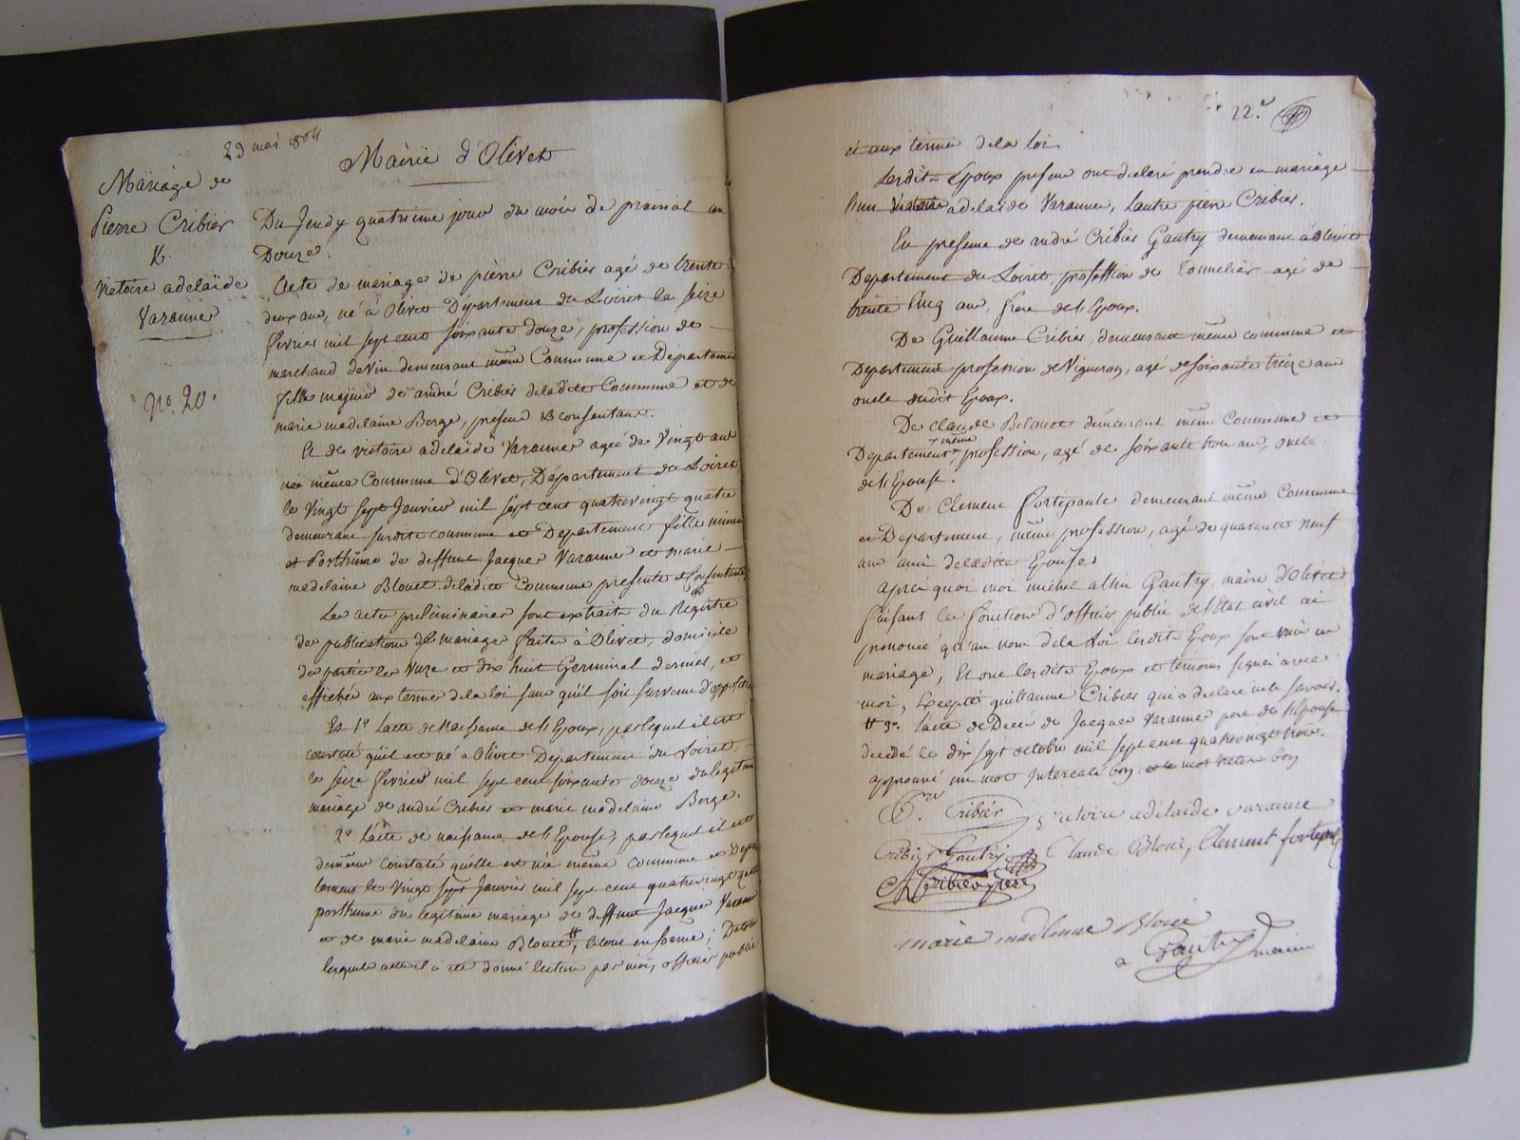 29 mai 1804
Mairie d'Olivet
Mariage de
Pierre Cribier
&
Victoire adelaïde
Varanne
No. 20.
Du Jeudy quatrieme jour du mois de prairial an
Douze.
Acte de mariage de pierre Cribier agé de trente
deux ans, né à Olivet Département du Loiret le seize
fevrier mil sept cent soixante douze, profession de
marchand de vin demeurant même Commune et Département
fils majeur de andré Cribier de ladite Commune et de
marie madelaine Berge, present & consentant.
Et de victoire adelaïde Varanne agée de Vingt ans
née même Commune d'Olivet, Département du Loiret
le Vingt Sept Janvier mil sept cent quatrevingt quatre
demeurant susdite commune et Département fille mineure
et Posthume de deffunt Jacque Varanne et marie
madelaine Blouet de ladite Commune presente et Consentante
Les actes preliminaires sont extraits du Registre
de publications de mariage faite à Olivet, domicile
de partie les Onze et dix huit Germinal dernier, et
affichés aux termes de la loi sans qu'il soit survenu d'opposition
Et 1º l'acte de Naissance de l'Epoux, par lequel il est
constaté qu'il est né a Olivet Département du Loiret
le seize fevrier mil sept cent soixante douze du legitime
mariage de andré Cribier et marie madelaine Berge.
2º L'acte de naissance de l'Epouse, par lequel il est
demeuré constaté qu'elle est née même commune et Depar
tement le Vingt sept Janvier mil sept cent quatrevingt quatre
posthume du legitime mariage de deffunt Jacque Varanne
et de marie madelaine Blouet #, le tout en forme; De tous
lesquels actes il a été donné lecture par moi, officier public
22.e
et aux termes de la loi.
Lesdits Epoux presens ont declaré prendre en mariage
l'un Victoire adelaide Varanne, l'autre pierre Cribier.
En presence de andré Cribier Gautry demeurant à Olivet
Departement du Loiret, profession de Tonnelier agé de
trente Cinq ans, frere de l'Epoux.
De Guillaume Cribier, demeurant même commune et
Departement profession de Vigneron, agé de soixante treize ans
oncle dudit Epoux.
De claude Blouet demeurant même Commune et
Departement même profession, agé de soixante trois ans, oncle
de l'Epouse.
De Clement fortepaule demeurant même Commune
et Département, même profession, agé de quarante neuf
ans ami de ladite Epouse
après quoi moi michel Gautry, maire d'Olivet
faisant les fonction d'officier public de l'Etat civil ai
prononcé qu'au nom de la Loi lesdits Epoux sont unis en
mariage, Et ont lesdits Epoux et temoins signé avec
moi, Excepté guillaume Cribier qui a declaré ne le savoir.
# 3º l'acte de Deces de Jacque Varanne pere de l'Epouse
decedé le dix sept octobre mil sept cent quatrevingt trois.
approuvé un mot Intercalé bon
P. Cribier victoire adelaide varanne
Cribier Gautry Claude Blouet, Clement fortepaule
Cribier pere
marie madlenne Bloué
Gautry maire